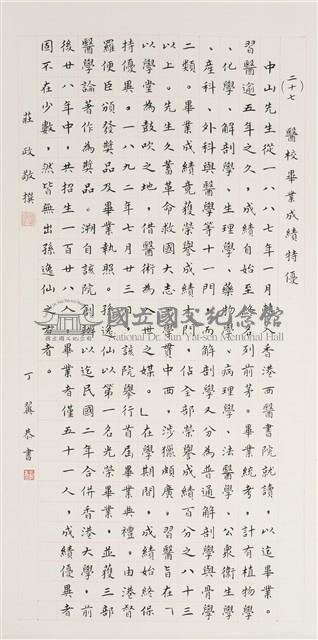 (二十七)
醫校畢業成績特優
中山先生從一八八七年一月入香港西醫書院就讀，以迄畢業。
習醫逾五年之久，成績自始至終名列前茅。畢業統考，計有植物學
、化學、解剖學、生理學、藥物學、病理學、法醫學、公衆衛生學
、產科、外科與醫學等十一門，而解剖學又分為普通解剖學與骨學
二類。畢業成績竟獲，佔全部榮譽成績百分之八十三
以上。先生久蓄革命救國大志，學貫中西，涉獵頗廣。習醫旨在「
以學堂為鼓吹之地，借醫術為入世之媒。」在學期間，成績始終保
持優異。一八九二年七月廿三日該院舉行首屆畢業典禮。由港督
羅便臣頒發獎品及畢業執照。孫逸仙以第一名光榮畢業，並獲三部
醫學論著作為獎品。溯自該院創辦以迄民國二年合併香港大學，前
後廿八年中，共招生一百廿八人，畢業者僅五十一人，成績優異者
固不在少數，然皆無出孫逸仙之右者。
莊政敬撰
丁龔恭書
國立國父紀念館
National Dr. Sun Yat-sen Memorial Hall